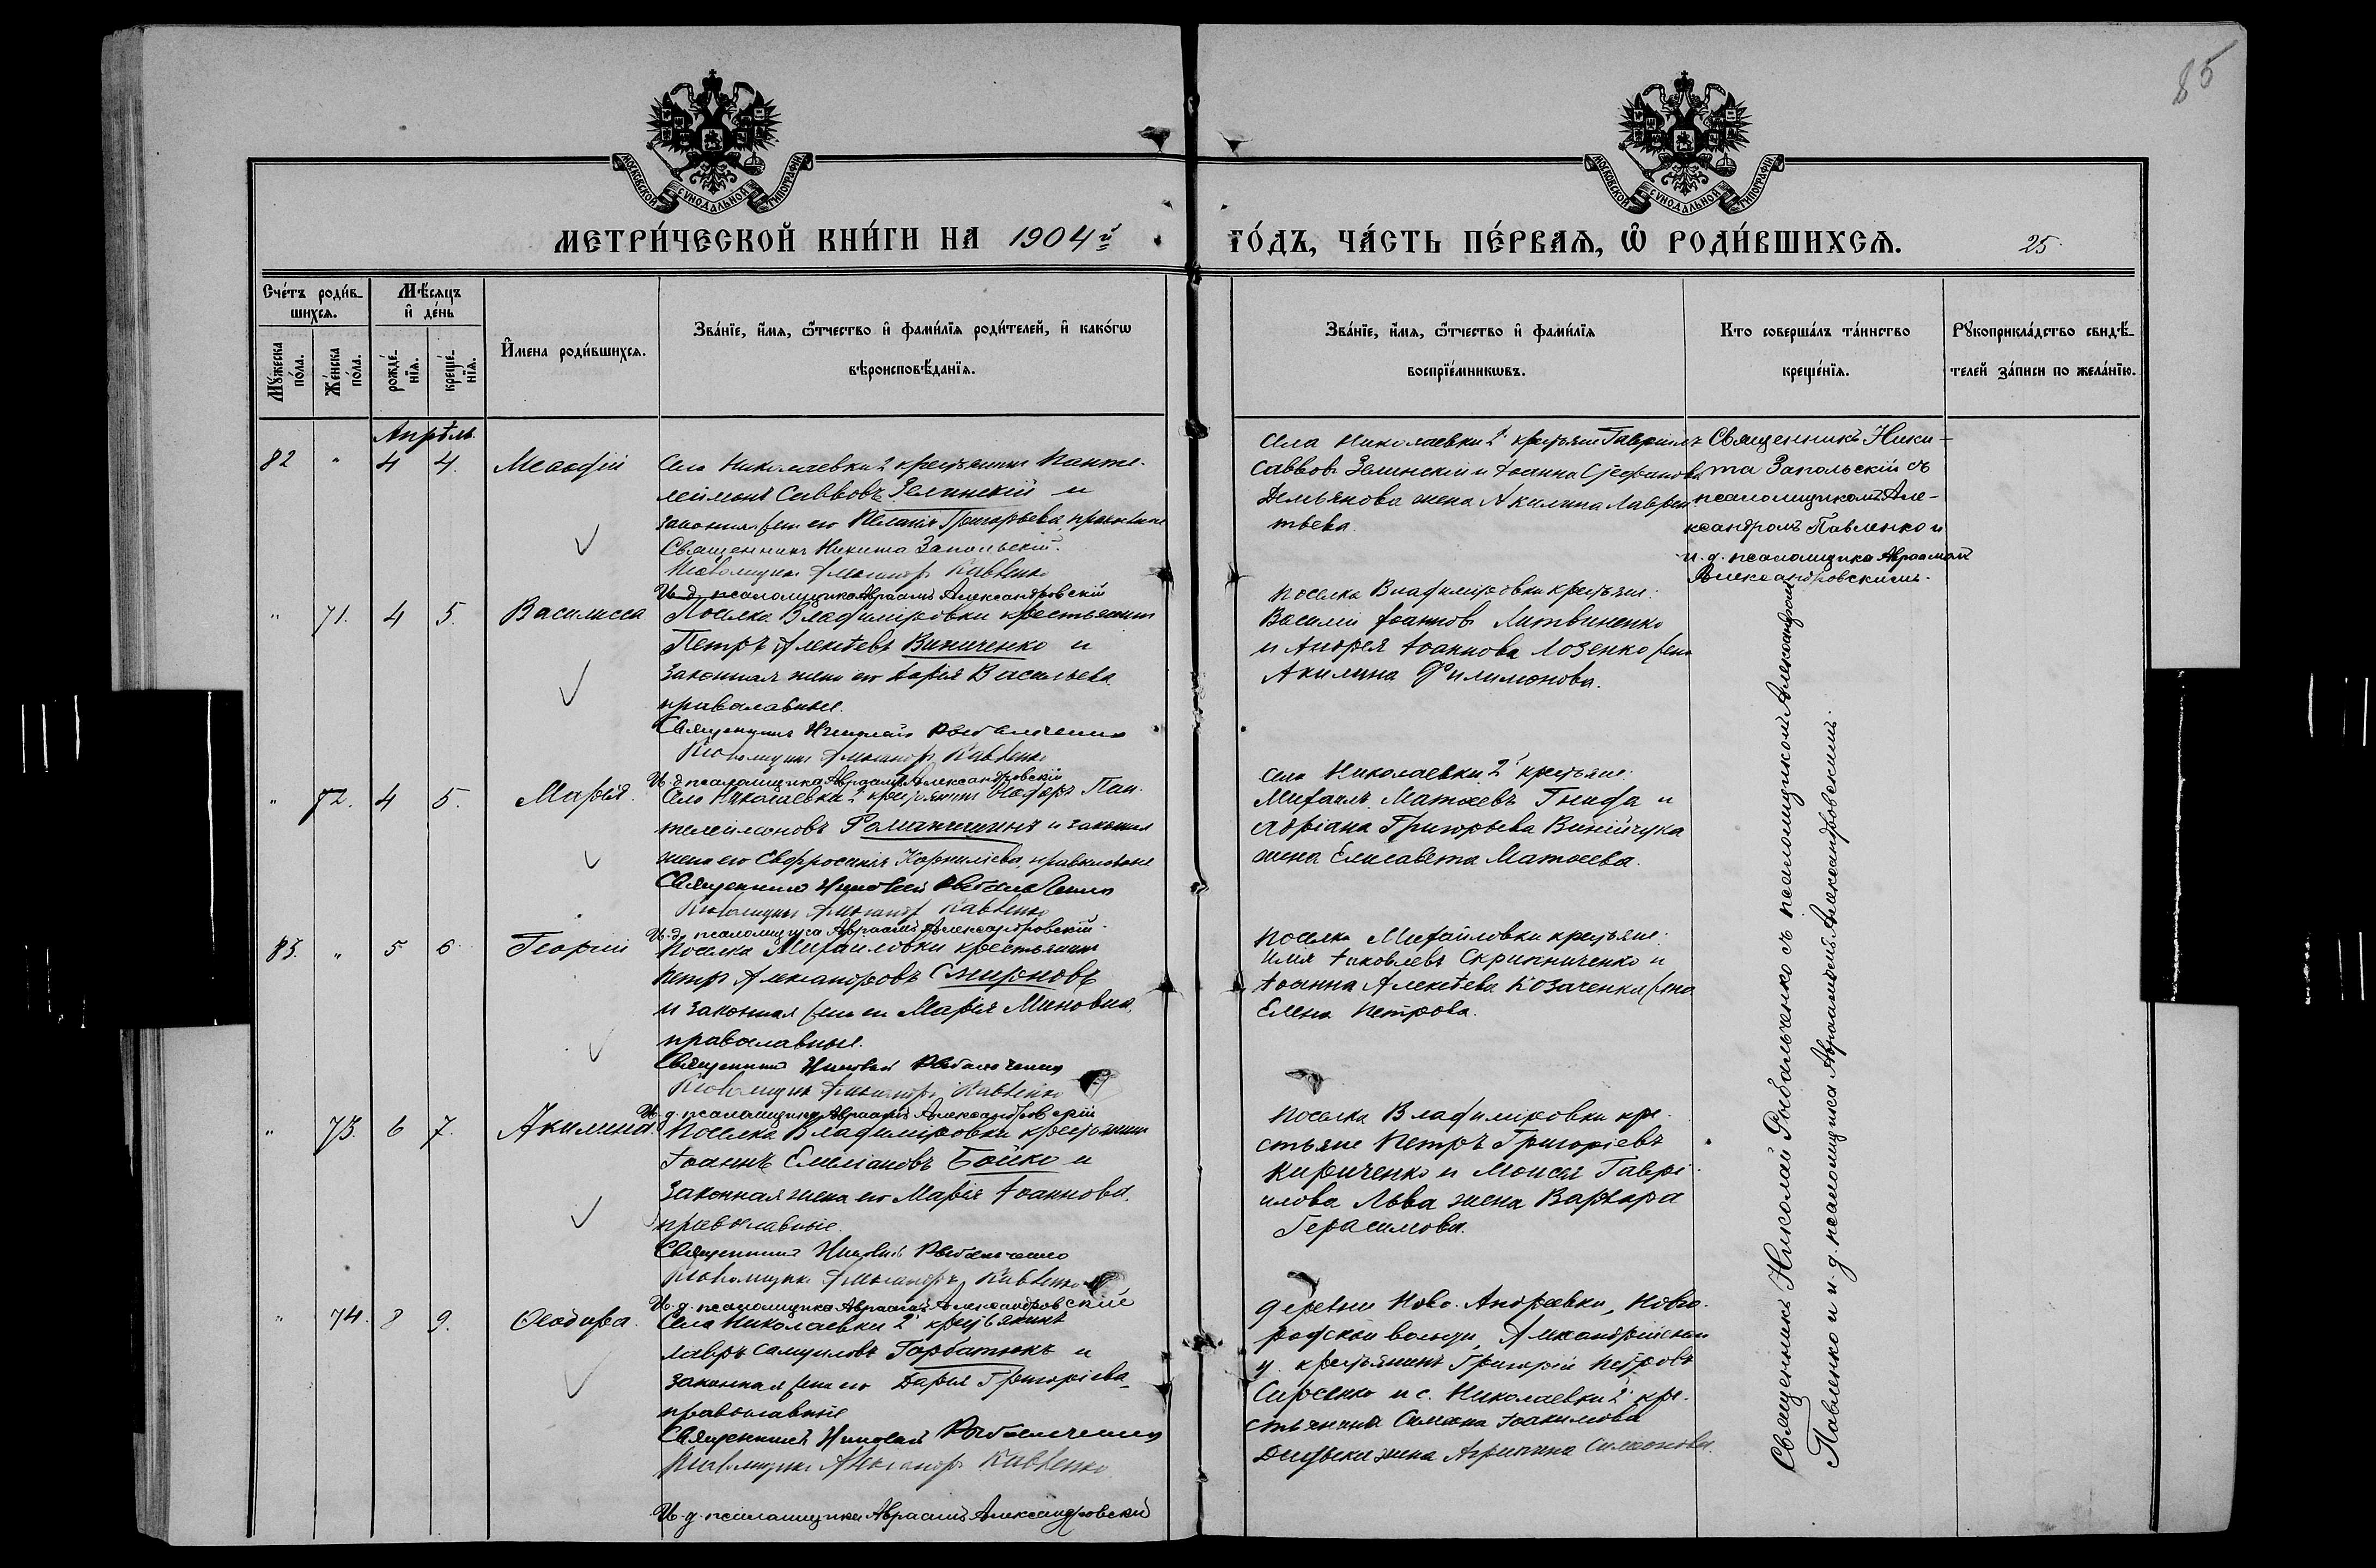 85
МОСКОВСКОЙ СѴНОДАЛЬНОЙ ТИПОГРАФІИ
МОСКОВСКОЙ СѴНОДАЛЬНОЙ ТИПОГРАФІИ
МЕТРИ́ЧЕСКОЙ КНИ́ГИ НА 1904й
ГО́ДЪ, ЧА́СТЬ ПЕ́РВАѦ, Ѡ РОДИ́ВШИХСѦ.
25
Сче́тъ роди́в-
шихсѧ.
Мꙋ́жеска по́ла.
Же́нска по́ла.
Мѣ́сѧцъ
и҆ де́нь
рожде́-нїѧ.
креще́-нїѧ.
И҆́мена роди́вшихсѧ.
Зва́нїе, и҆́мѧ, ѻ҆́тчество и҆ фами́лїѧ роди́телей, и҆ како́гѡ
вѣроисповѣ́данїѧ.
Зва́нїе, и҆́мѧ, ѻ҆́тчество и҆ фами́лїѧ
воспрїе́мникѡвъ.
Кто соверша́лъ та́инство
креще́нїѧ.
Рꙋкоприкла́дство свидѣ́-
телей за́писи по жела́нїю.
Апрѣль.
82 " 4 4.
Села Николаевки 2 крестьянинъ Панте-
леймонъ Саввовъ Зелинскій и
законная жена его Пелагія Григорьева, православные
Священникъ Никита Запольскій.
Псаломщикъ Александръ Павленко
И. д. псаломщика Авраамъ Александровскій
Села Николаевки 2 крестьяне Гавріилъ
Саввовъ Зелинскій и Іоанна Стефанова
Демьянова жена Акилина Лаврен-
тьева.
Священникъ Ники-
та Запольскій съ
псаломщикомъ Але-
ксандромъ Павленко и
и. д. псаломщика Авраамомъ
Александровскимъ.
" 71. 4 5. Василисса
Поселка Владиміровки крестьянинъ
Петръ Алексѣевъ Виниченко и
законная жена его Дарія Васильева
православные.
Священникъ Николай Рыбальченко
Псаломщикъ Александръ Павленко
И. д. псаломщика Авраамъ Александровскій
Поселка Владиміровки крестьяне:
Василій Іоанновъ Литвиненко
и Андрея Іоаннова Лозенко жена
Акилина Филимонова.
" 72. 4 5. Марія.
Села Николаевки 2 крестьянинъ Ѳеодоръ Пан-
телеймоновъ и законная
жена его Евфросинія Корниліева, православные
Священникъ Николай Рыбальченко
Псаломщикъ Александръ Павленко
И. д. псаломщика Авраамъ Александровскій.
Села Николаевки 2 крестьяне:
Михаилъ Матѳеевъ Гнида и
Адріана Григорьева Винійчука
жена Елисавета Матѳеева.
83. " 5 6 Георгій
Поселка Михайловки крестьянинъ
Петръ Александровъ Смирновъ
и законная жена его Марія Миновна,
православные.
Священникъ Николай Рыбальченко
Псаломщикъ Александръ Павленко
И. д. псаломщика Авраамъ Александровскій
Поселка Михайловки крестьяне:
Илія Іаковлевъ Скрипниченко и
Іоанна Алексѣева Козаченка жена
Елена Петрова.
" 73. 6 7. Акилина.
Поселка Владиміровки крестьянинъ
Іоаннъ Емеліановъ Бойко и
законная жена его Марія Іоаннова.
православные.
Священникъ Николай Рыбальченко
Псаломщикъ Александръ Павленко
И. д. псаломщика Авраамъ Александровскій
Поселка Владиміровки кре-
стьяне Петръ Григоріевъ
Кириченко и Моисея Гаврі-
илова Льва жена Варвара
Герасимова.
" 74. 8 9. Ѳеодора.
Села Николаевки 2 крестьянинъ
Лавръ Самуиловъ Горбатюкъ и
законная жена его Дарія Григоріева,
православные
Священникъ Николай Рыбальченко
Псаломщикъ Александръ Павленко
И. д. псаломщика Авраамъ Александровскій
Деревни Ново-Андреевки, Новго-
родской волости, Александрійскаго
у. крестьянинъ Григорій Петровъ
Сиренко и с. Николаевки 2 кре-
стьянина Симеона Іоакимова
жена Агрипина Симеонова.
Священникъ Николай Рыбальченко съ псаломщикомъ Александромъ
Павленко и и. д. псаломщика Авраамомъ Александровскимъ.